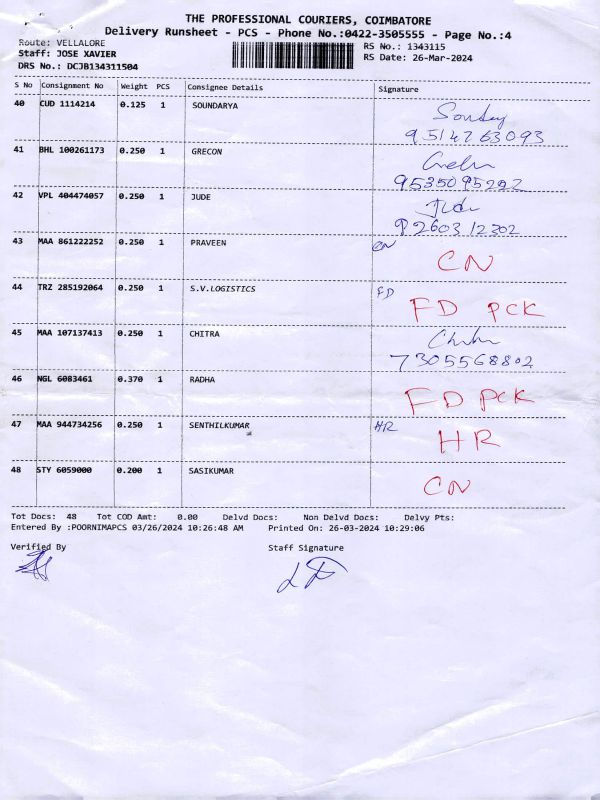 THE PROFESSIONAL COURIERS, COIMBATORE
Delivery Runsheet - PCS - Phone No.:0422-3505555 - Page No.:4
Route: VELLALORE
RS No.: 1343115
Staff: JOSE XAVIER
RS Date: 26-Mar-2024
DRS No.: DCJB134311504
S No Consignment No Weight PCS Consignee Details Signature
40 CUD 1114214 0.125 1 SOUNDARYA
9514763093
41 BHL 100261173 0.250 1 GRECON
9535095222
42 VPL 404474057 0.250 1 JUDE Jude
9260312302
43 MAA 861222252 0.250 1 PRAVEEN CN
CN
44 TRZ 285192064 0.250 1 S.V.LOGISTICS FD
FD PCK
45 MAA 107137413 0.250 1 CHITRA
7305568802
46 NGL 6083461 0.370 1 RADHA
FD PCK
47 MAA 944734256 0.250 1 SENTHILKUMAR HR
HR
48 STY 6059000 0.200 1 SASIKUMAR
CN
Tot Docs: 48 Tot COD Amt: 0.00 Delvd Docs: Non Delvd Docs: Delvy Pts:
Entered By :POORNIMAPCS 03/26/2024 10:26:48 AM Printed On: 26-03-2024 10:29:06
Verified By Staff Signature